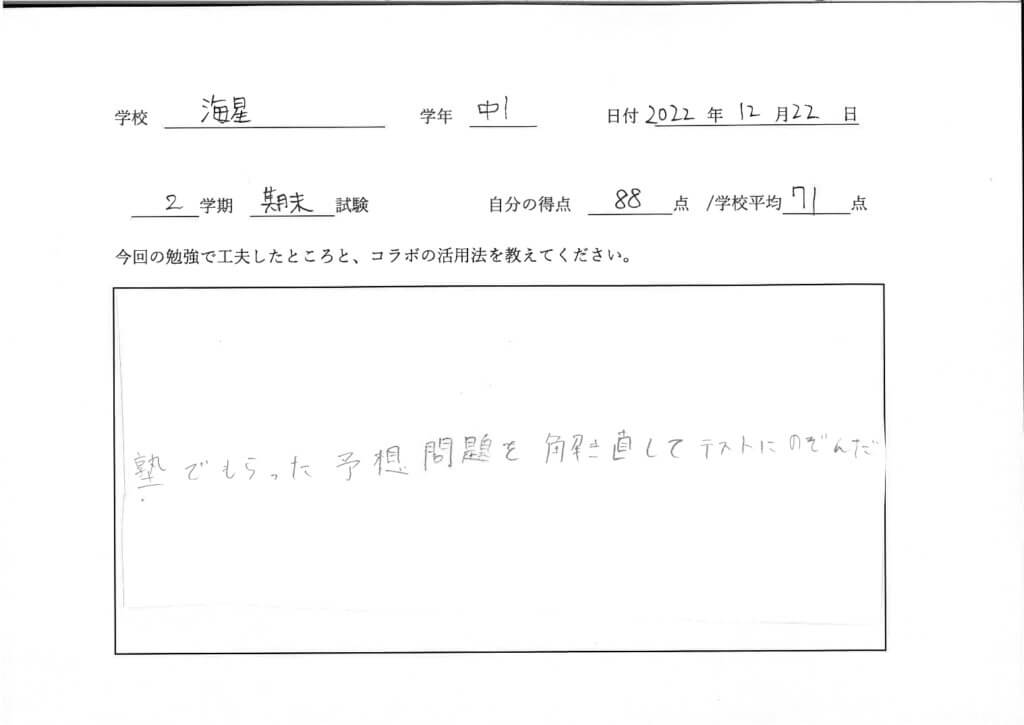 学校 海星 学年 中1 日付 2022 年 12 月 22 日
2 学期 期末 試験 自分の得点 88 点 /学校平均 71 点
今回の勉強で工夫したところと、コラボの活用法を教えてください。
塾でもらった予想問題を解き直してテストにのぞんだ